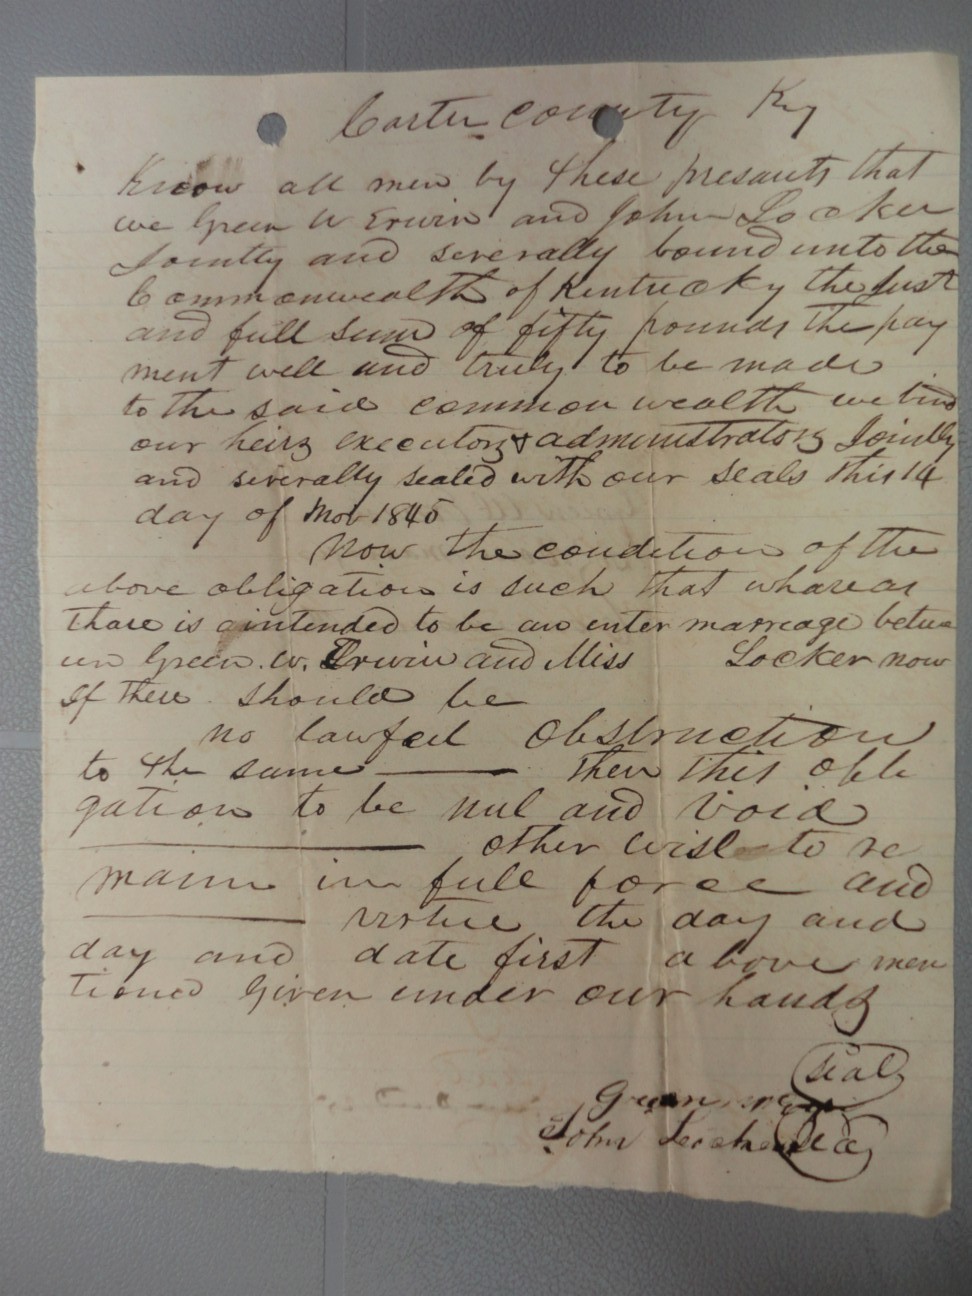 Carter county Ky
Know all men by these presants that
we Green W Erwin and John Locker
Jointly and severally bound unto the
Commonwealth of Kentucky the Just
and full sum of fifty pounds the pay
ment well and truly to be made
to the said common wealth we bind
our heirs executors & administrators Jointly
and severally sealed with our seals this 14
day of Nov 1845
Now the condition of the
above obligation is such that whareas
thare is aintended to be an enter marreage betwe
en Green. W. Erwin and Miss Locker now
if there should be
no lawfeel obstruction
to the same —— then this obli
gation to be nul and void
—— other wise to re
main in full force and
—— virtue the day and
day and date first above men
tioned Given under our hands
Seal
Green
John Locker Seal